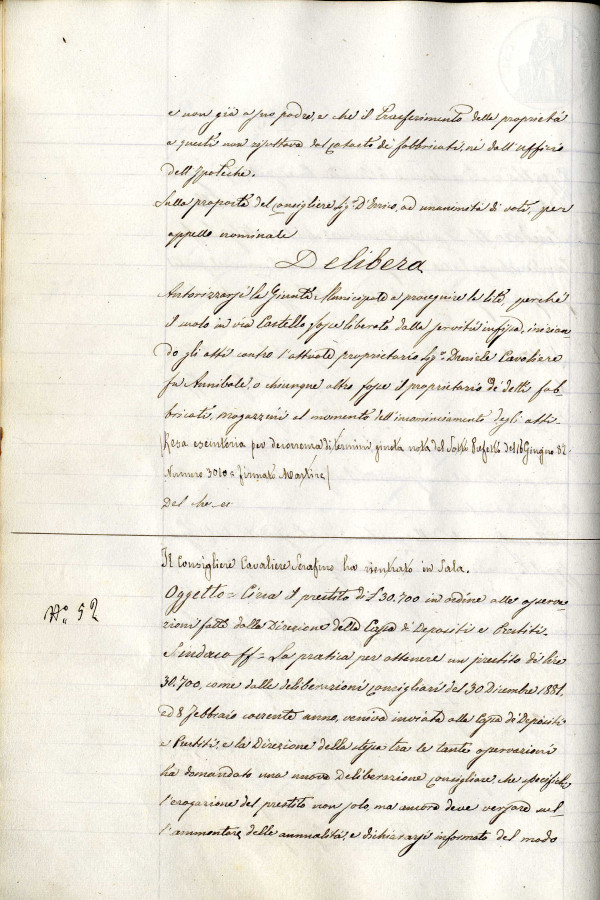 e non già a suo padre, e che il trasferimento delle proprietà
a questi non risultava dal catasto de' fabbricati, nè dall'Uffizio
dell'Ipoteche.
Sulla proposta del Consigliere Sig.r D'Errico, ad unanimità di voti, per
appello nominale
Delibera
Autorizzarsi la Giunta Municipale a proseguire la lite perchè
il suolo in via Castello fosse liberato dalla servitù infissa, inizian-
do gli atti contro l'attuale proprietario Sig.r Daniele Cavaliere
fu Annibale, o chiunque altro fosse il proprietario de' detti fab-
bricati, magazzeni al momento dell'incominciamento degli atti.
(Resa esecutoria per decorrenza di termini, giusta nota del Sotto Prefetto del 16 Giugno 82-
Numero 3010= firmato Martire)
Del che ec
Il Consigliere Cavaliere Serafino ha rientrato in Sala.
N.o 52
Oggetto= Circa il prestito di £ 30.700 in ordine alle osserva-
zioni fatte dalla Direzione della Cassa di Depositi e Prestiti.
Sindaco ff= La pratica per ottenere un prestito di lire
30.700, come dalle deliberazioni consigliari del 30 Dicembre 1881,
ed 8 febbraio corrente anno, veniva inviata alla Cassa de' Depositi
e Prestiti, e la Direzione della stessa tra le tante osservazioni
ha domandato una nuova Deliberazione Consigliare che specifichi
l'erogazione del prestito non solo, ma ancora deve versare sul-
l'ammontare delle annualità, e dichiararsi informato del modo